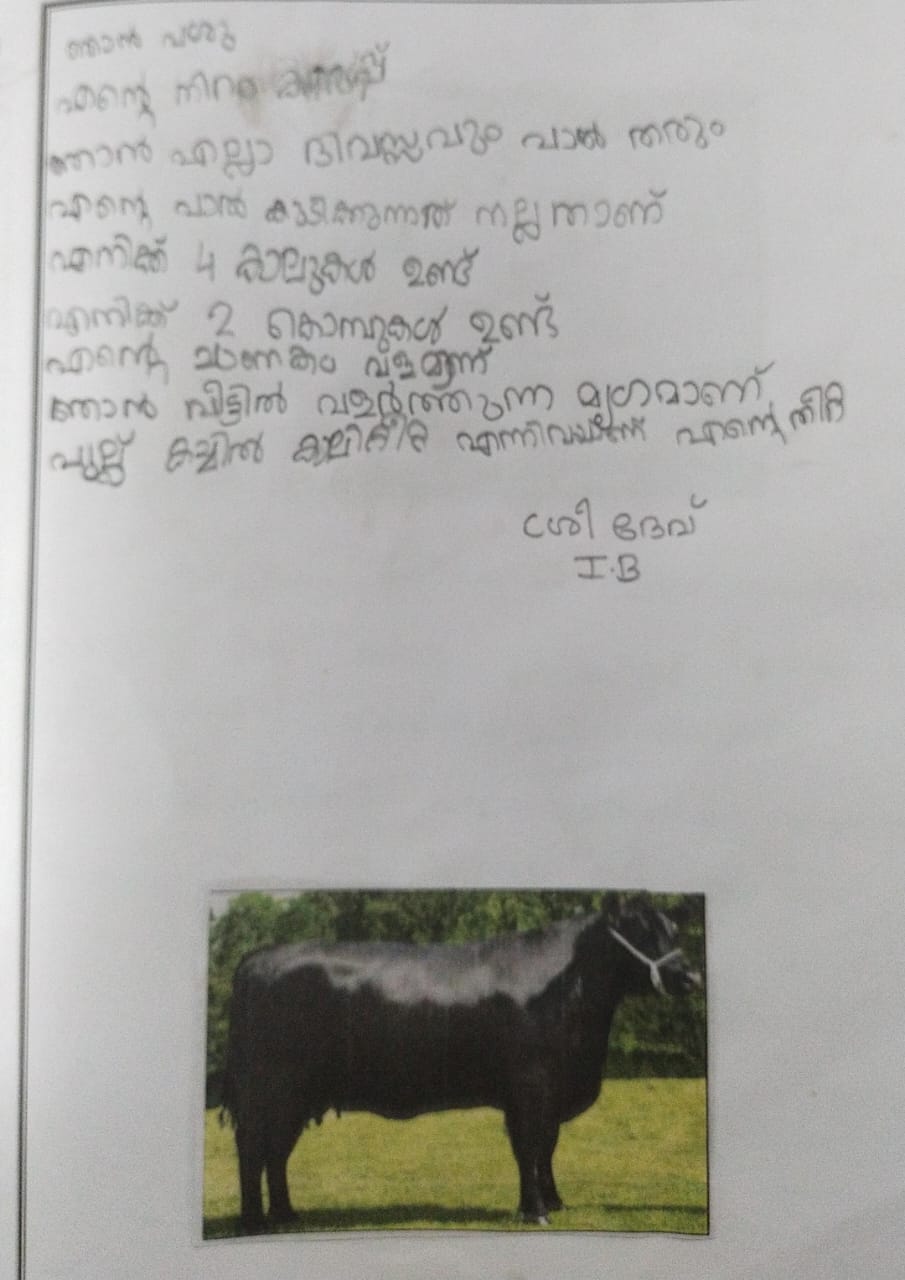 ഞാൻ പശു
എന്റെ നിറം കറുപ്പ്
ഞാൻ എല്ലാ ദിവസ്സവും പാൽ തരും
എന്റെ പാൽ കുടിക്കുന്നത് നല്ലതാണ്
എനിക്ക് 4 കാലുകൾ ഉണ്ട്
എനിക്ക് 2 കൊമ്പുകൾ ഉണ്ട്
എന്റെ ചാണകം വളമാണ്
ഞാൻ വീട്ടിൽ വളർത്തുന്ന മൃഗമാണ്
പുല്ല് കച്ചിൽ കാലിത്തീറ്റ എന്നിവയാണ് എന്റെ തീറ്റ
ദേവ്
I.B